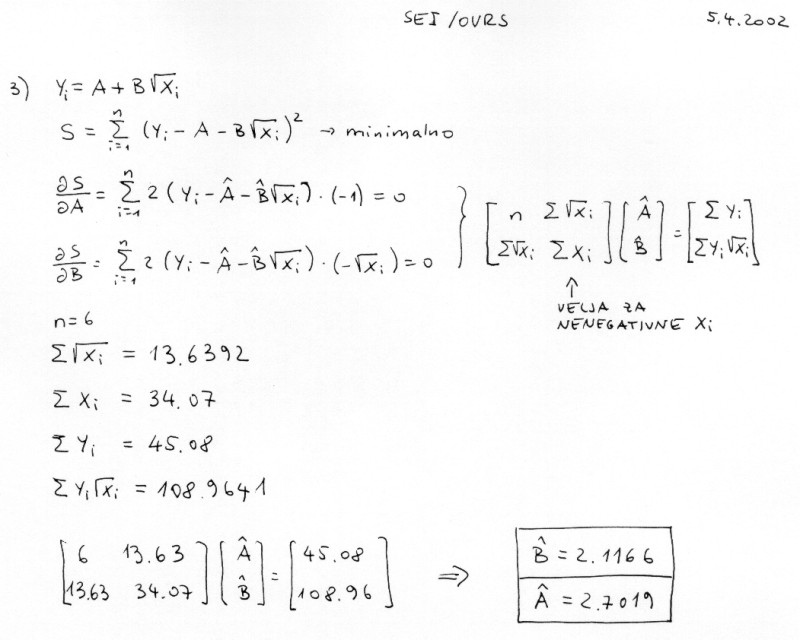 SEI/OVRS 5.4.2002
3) Yᵢ = A + B√Xᵢ
S = Σᵢ₌₁ⁿ (Yᵢ - A - B√Xᵢ)² → minimalno
∂S/∂A = Σᵢ₌₁ⁿ 2(Yᵢ - Â - B̂√Xᵢ)·(-1) = 0
∂S/∂B = Σᵢ₌₁ⁿ 2(Yᵢ - Â - B̂√Xᵢ)·(-√Xᵢ) = 0
} [n Σ√Xᵢ; Σ√Xᵢ ΣXᵢ] [Â; B̂] = [ΣYᵢ; ΣYᵢ√Xᵢ]
↑
VELJA ZA
NENEGATIVNE Xᵢ
n=6
Σ√Xᵢ = 13.6392
ΣXᵢ = 34.07
ΣYᵢ = 45.08
ΣYᵢ√Xᵢ = 108.9641
[6 13.63; 13.63 34.07] [Â; B̂] = [45.08; 108.96] ⇒
B̂ = 2.1166
Â = 2.7019